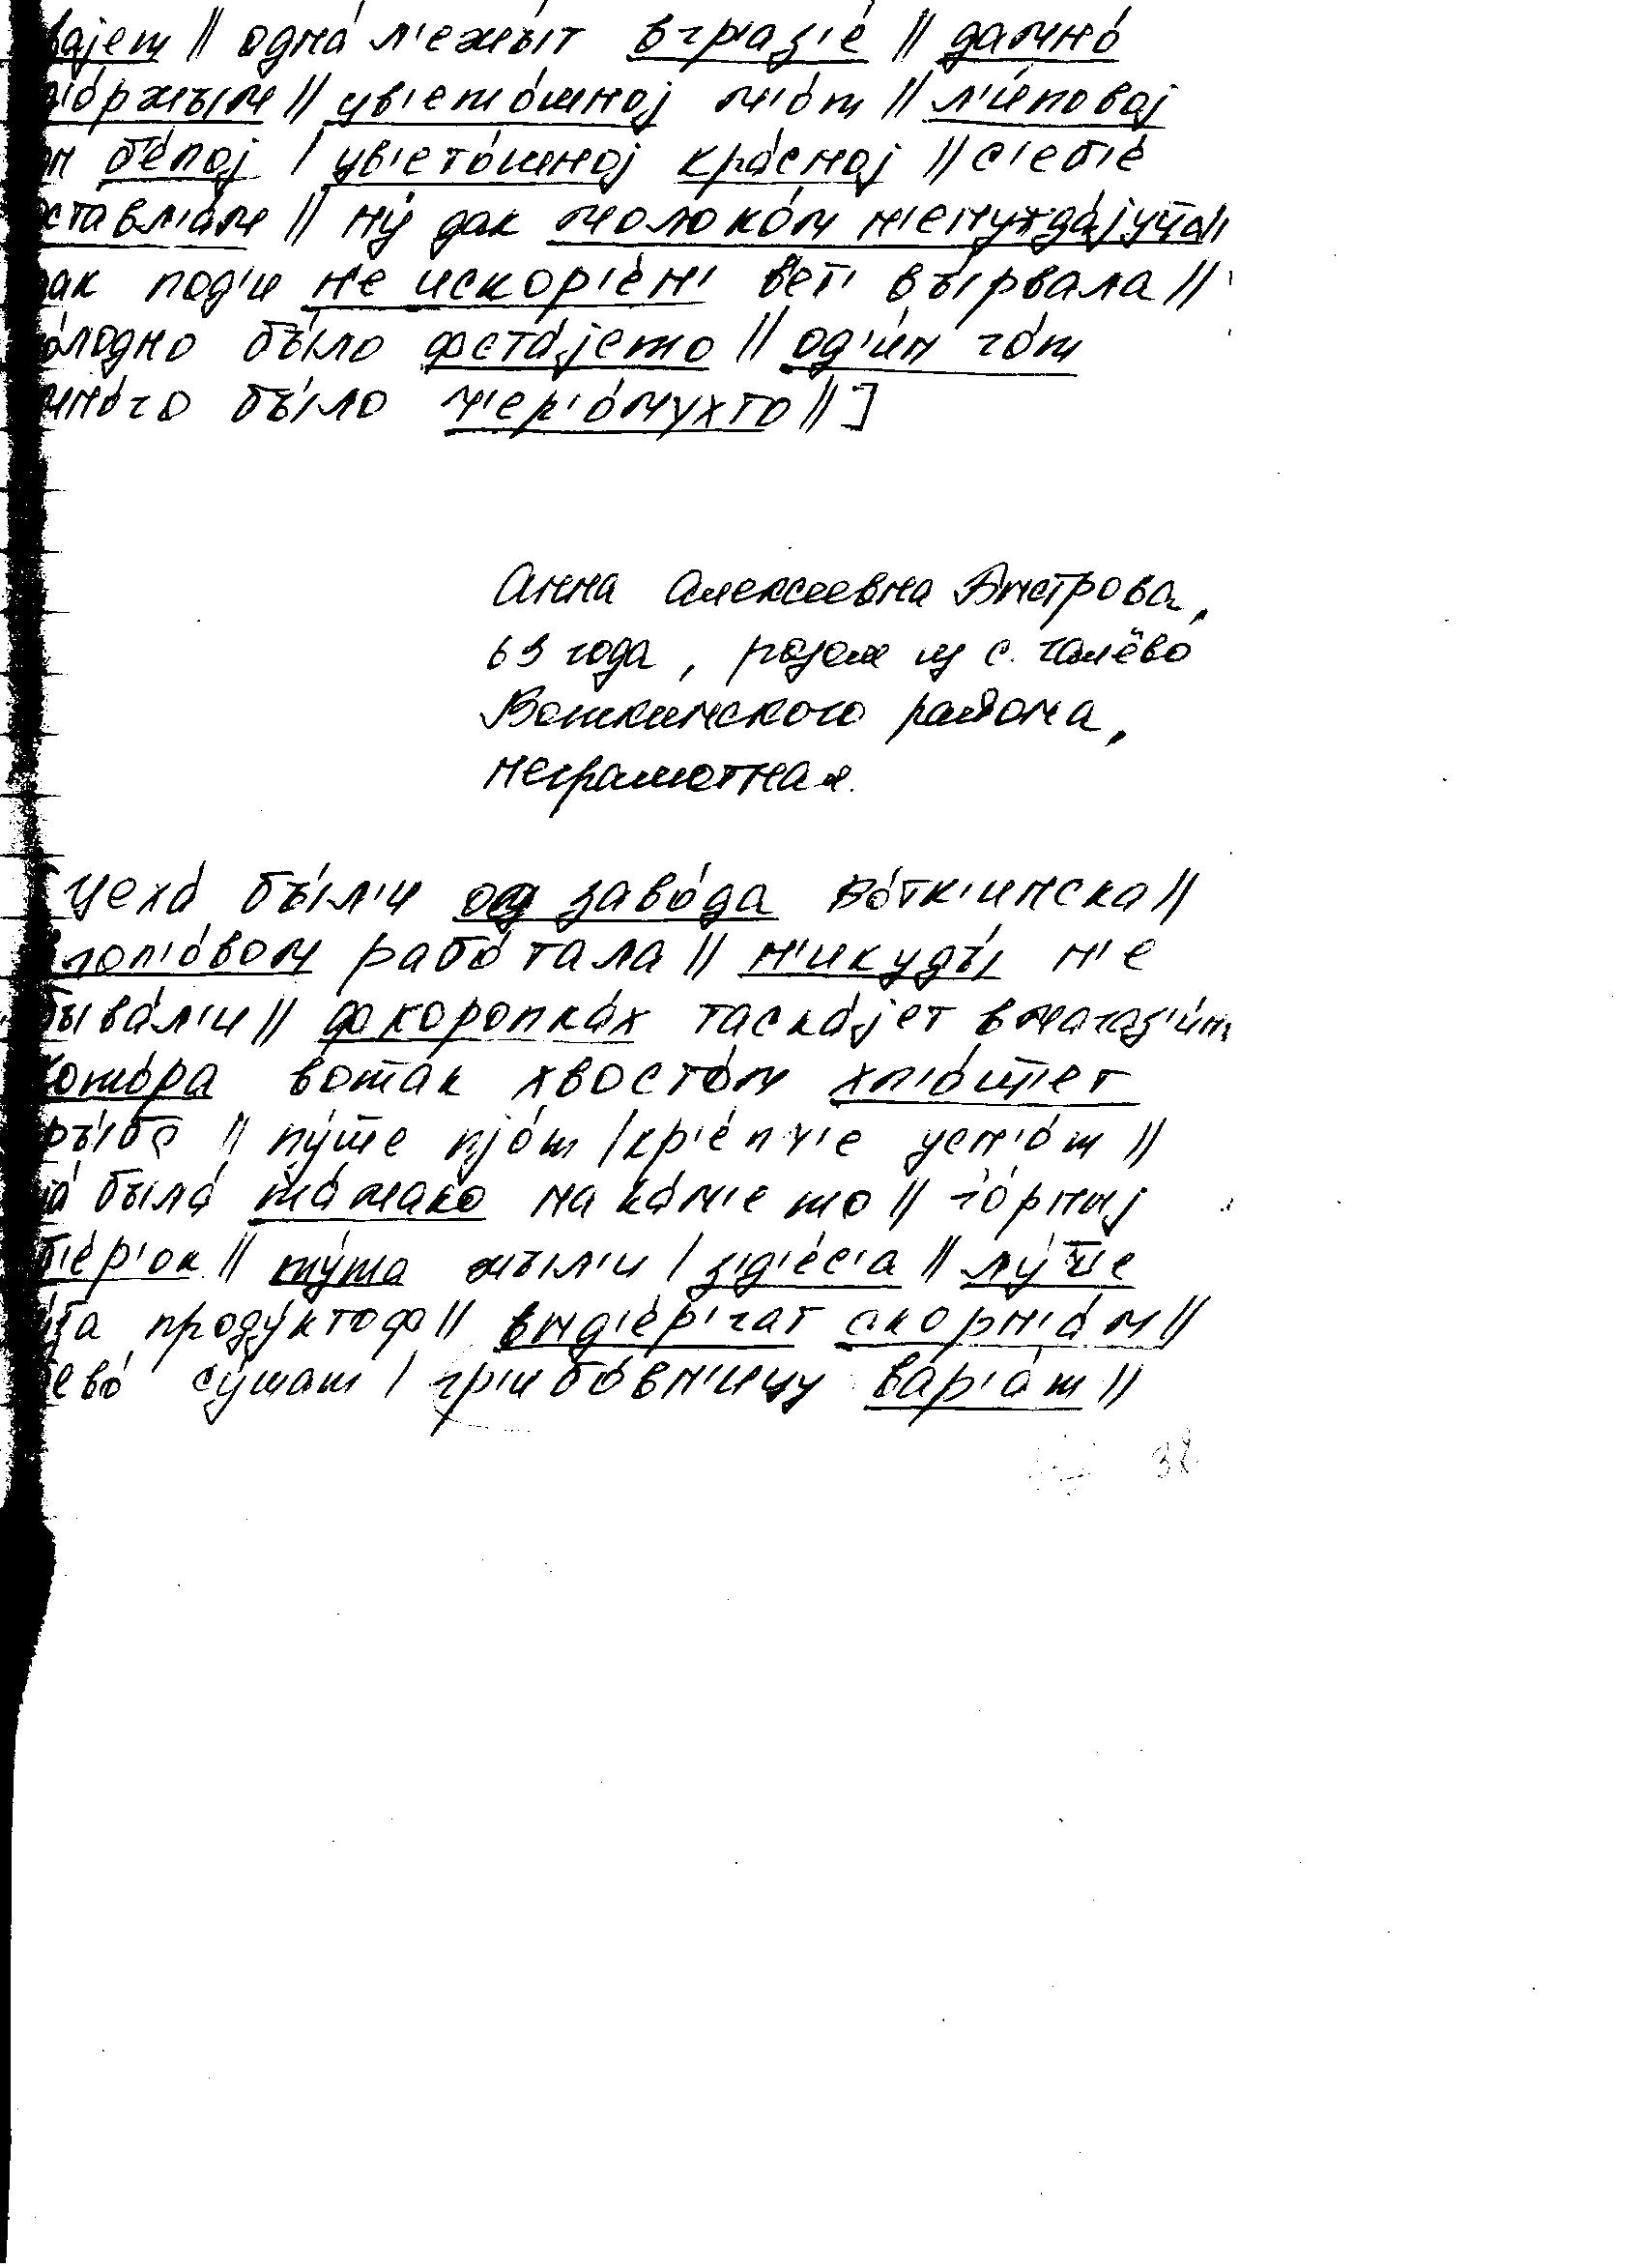 вајет || одна́ л'ежы́т вгр'аз'е́ || дамно́
о́ржым || цв'ето́шној м'о́т || л'и́повој
б'е́лој / цв'ето́шној кра́сној || с'еб'е́
ставл'а́м || ну́ дак молоко́м н'енужда́јуца ||
ак под'и н'е искор'е́н' вет' вы́рвала ||
о́лодно бы́ло фста́јето || од'и́н го́т
много бы́ло ч'ер'о́мухто || ]
Анна Алексеевна Быстрова,
63 года, родом из с. Галёво
Воткинского района,
неграмотная.
[ Цеха́ бы́л'и од заво́да во́тк'инска ||
рабо́тала || н'икуды́ н'е
быва́л'и || фкоропка́х таска́јет вмагаз'и́н
кото́ра вота́к хвосто́м хл'о́щет
ры́ба || пу́ще пјо́т / кр'е́пч'е усн'о́т ||
была́ та́мако на ка́м'е то || го́рныј
б'е́р'ок || ту́та жыл'и / з'д'е́с'а || лу́че
продуктоф || выд'е́р'гат скорн'а́м ||
ево́ су́шат / гр'ибо́вн'ицу вар'а́т ||
38